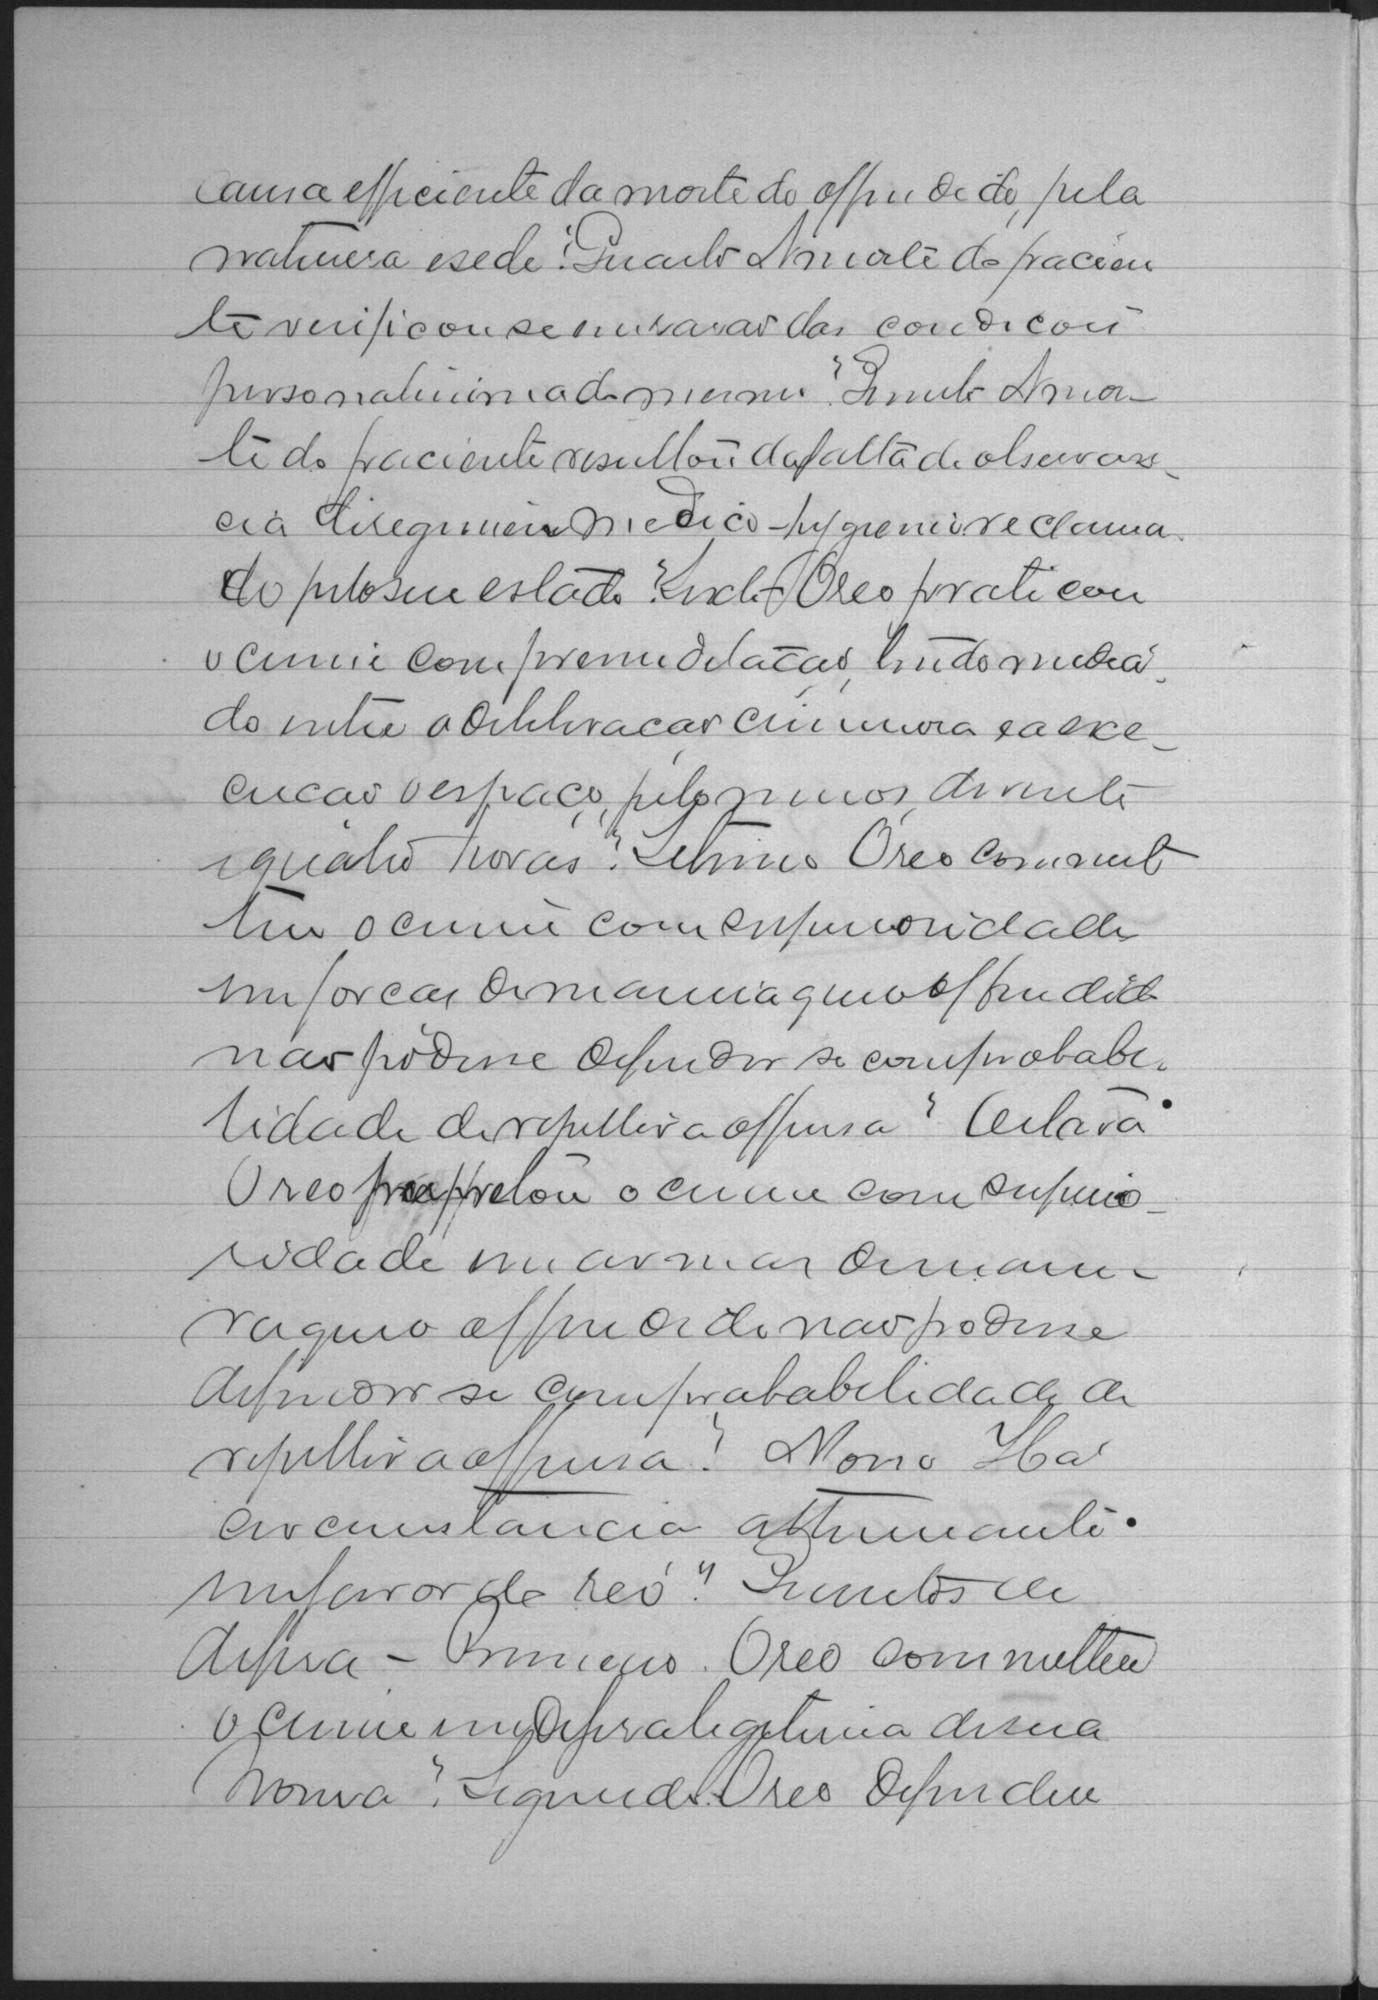 causa efficiente da morte do offendido, pela
natureza e sede? Quarto A morte do pacien
te verificou se em razão das condições
personalissima do mesmo? Quinto A mor-
te do paciente resultou da falta de observan-
cia do regimen medico-hygienico reclama-
do pelo seu estado? Sexto O reo praticou
o crime com premeditação, tendo media-
do entre a deliberação criminosa e a exe-
cução o espaço, pelo menos, de vinte
e quatro horas? Setimo O reo commet
teu o crime com superioridade
em forças de maneira que o offendido
não pódesse defender se com probabi-
lidade de repellir a offensa? Oitavo
O reo perpetrou o crime com superio-
ridade em armas de manei-
ra que o offendido não podesse
defender se com probabilidade de
repellir a offensa? Nono Ha
circumstancia attenuante
em favor do reo? Quesitos de
defesa - Primeiro. O reo commetteu
o crime em defesa legitima de sua
honra? Segundo. O reo defendeu